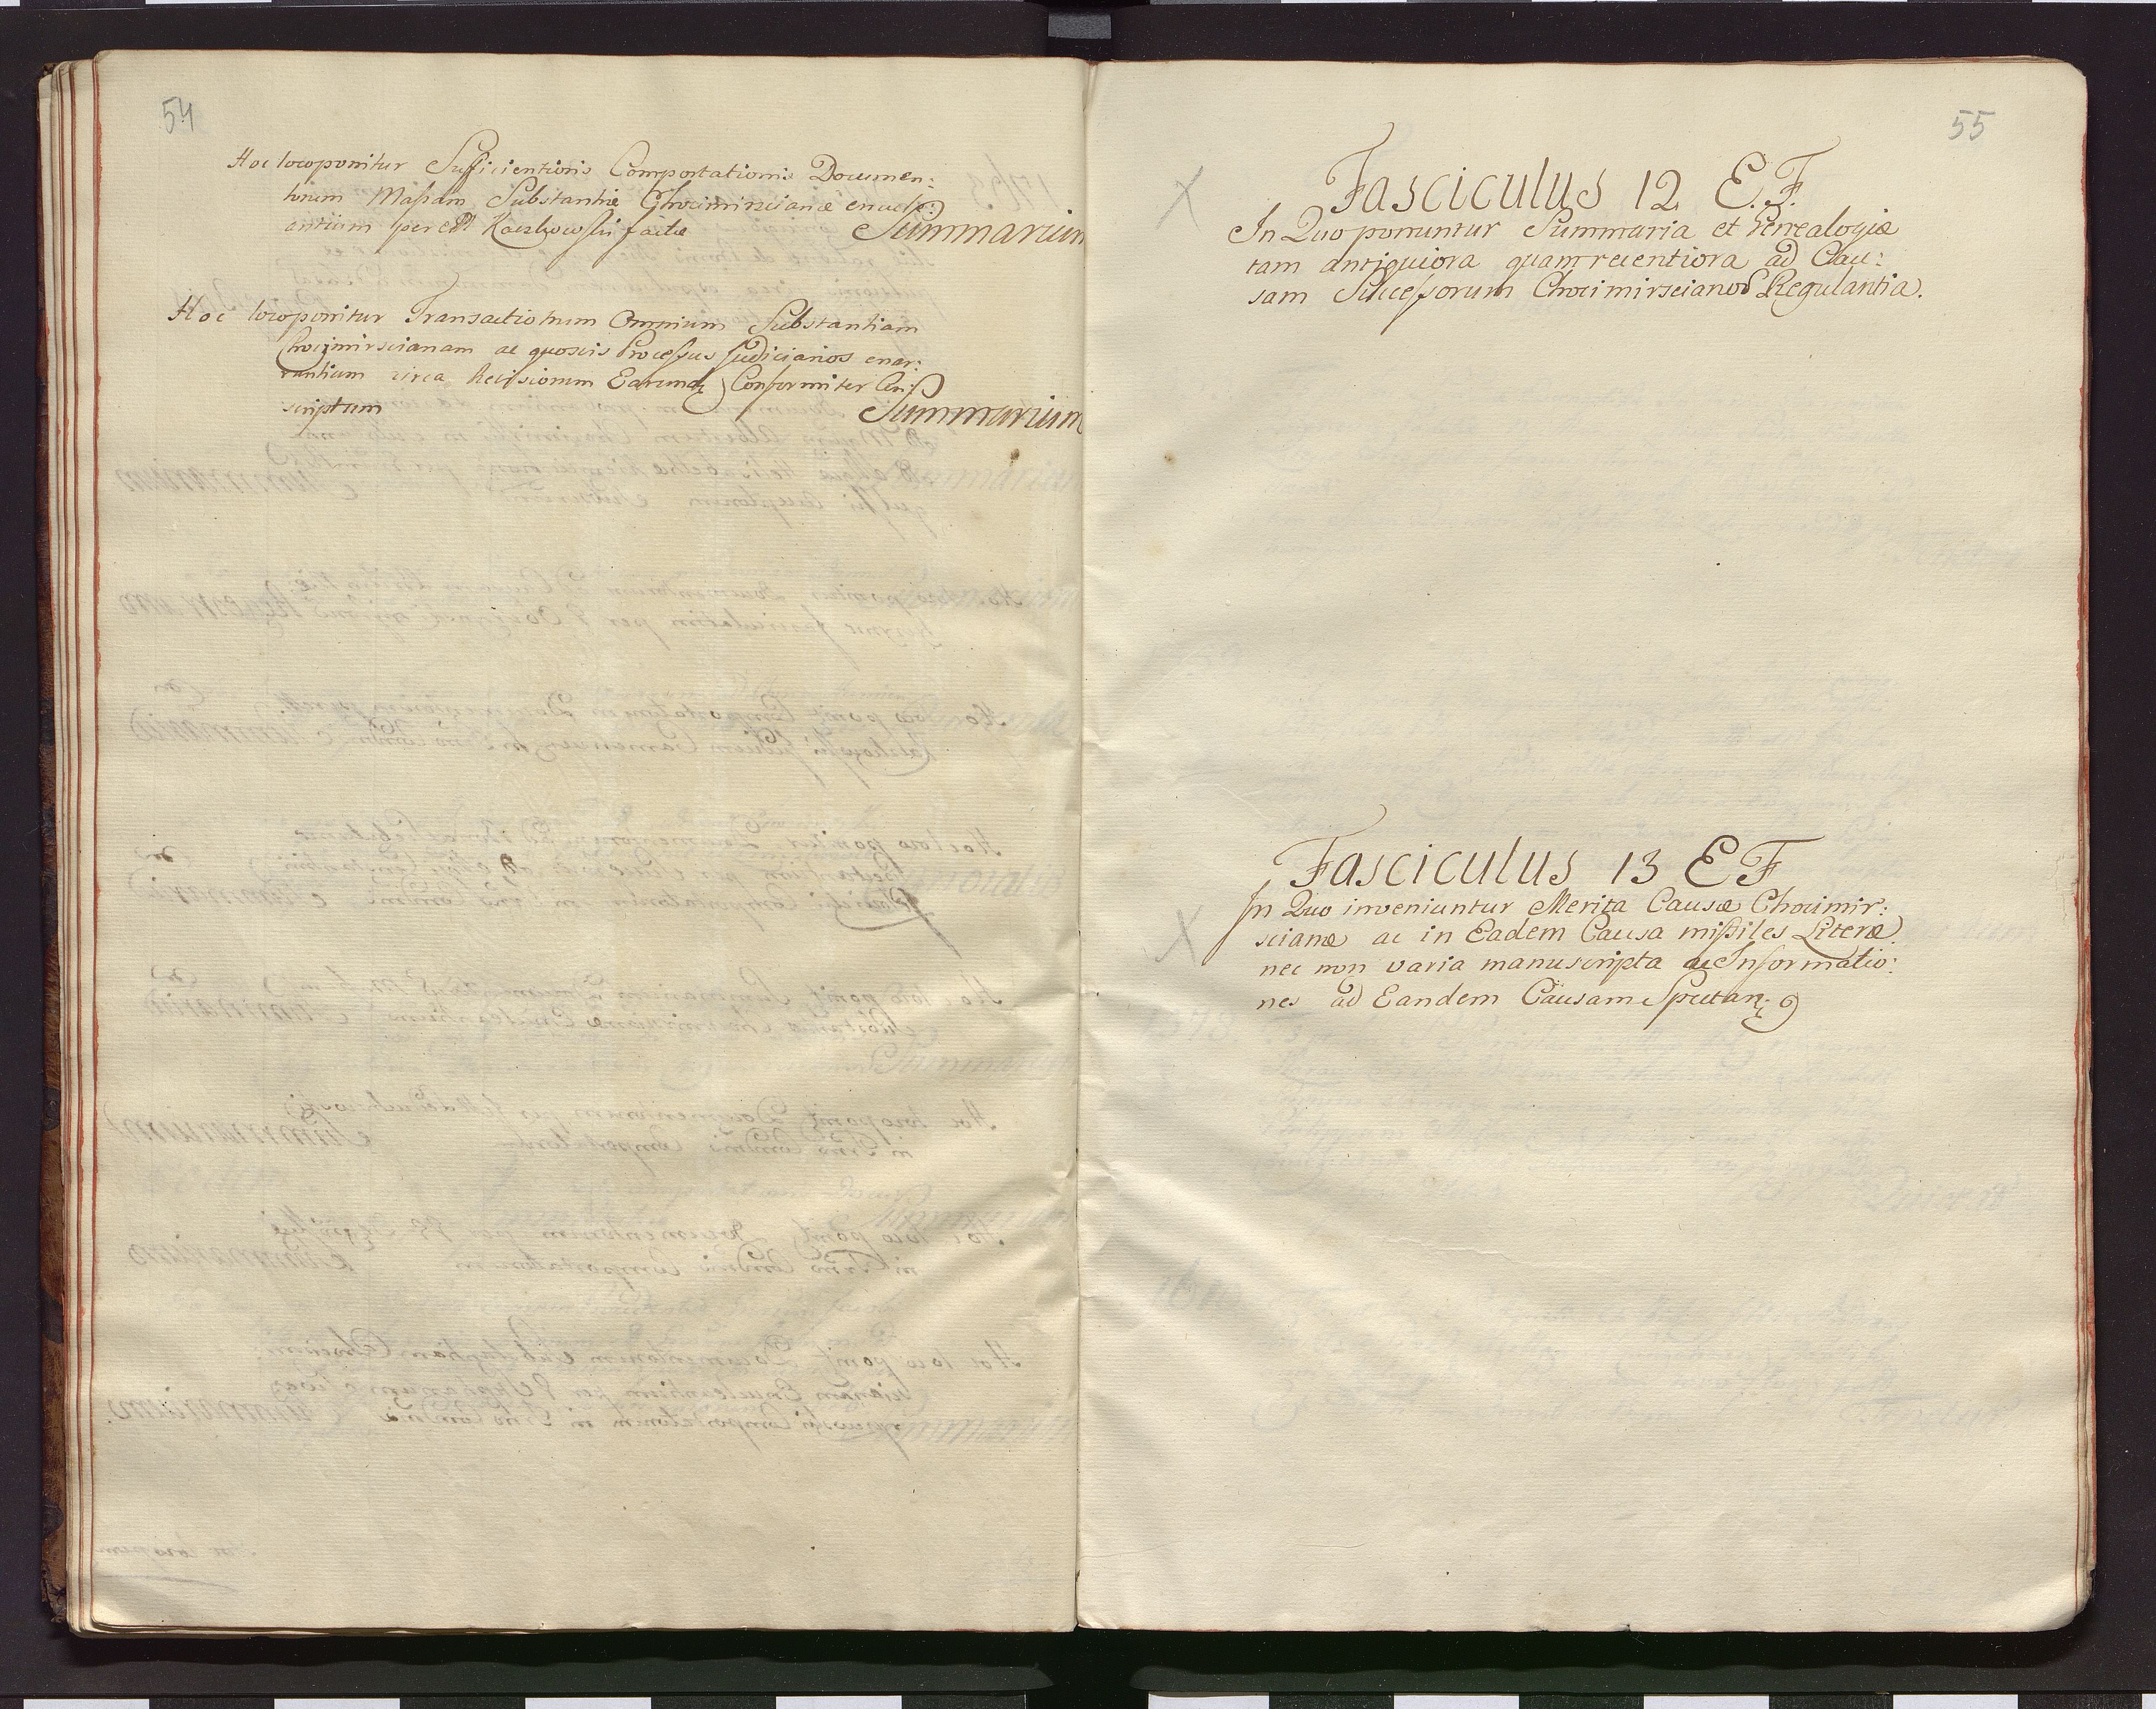 54
Hoc locoponitur Sufficientionis Comportationis Documen:
torum Massam Substantiæ Chocimirscianæ enucle:
antium per Kaczkowski factæ Summarium
Hoc locoponitur Transactionum Omnium Substantiam
Chocimirscianam ac quosvis Processus Judiciarios enar:
rantium circa Revisionem Earundz Conformiter
scriptum Summarium
55
X
Fasciculus 12. E.F.
In Quo ponuntur Summaria et Genealogiæ
tam antiquiora quam recentiora ad Cau:
sam Successorum Chocimirscianor Regulantia.
Fasciculus 13 EF
X
In Quo inveniuntur Merita Causæ Chocimir:
scianæ ac in Eadem Causa missiles Literæ
nec non varia manuscripta ac Informatio:
nes ad Eandem Causam